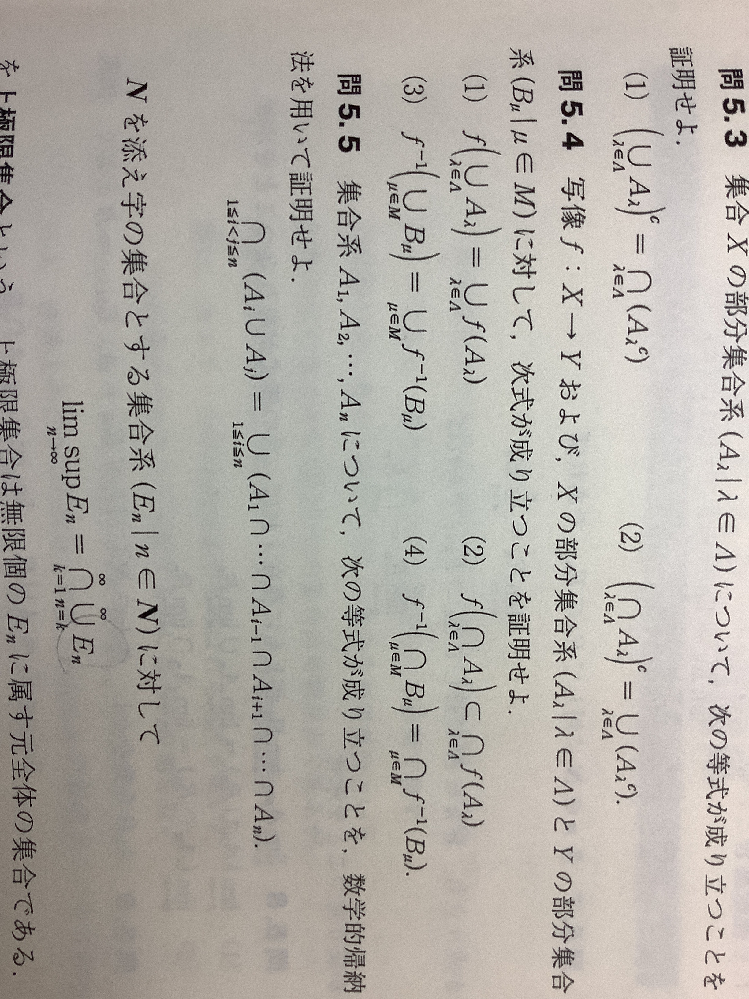 問5.3 集合 X の部分集合系 (A_λ | λ ∈ Λ) について, 次の等式が成り立つことを
証明せよ.
(1) (∪_{λ∈Λ} A_λ)^c = ∩_{λ∈Λ} (A_λ^c) (2) (∩_{λ∈Λ} A_λ)^c = ∪_{λ∈Λ} (A_λ^c).
問5.4 写像 f : X → Y および, X の部分集合系 (A_λ | λ ∈ Λ) と Y の部分集合
系 (B_μ | μ ∈ M) に対して, 次式が成り立つことを証明せよ.
(1) f(∪_{λ∈Λ} A_λ) = ∪_{λ∈Λ} f(A_λ) (2) f(∩_{λ∈Λ} A_λ) ⊂ ∩_{λ∈Λ} f(A_λ)
(3) f^{-1}(∪_{μ∈M} B_μ) = ∪_{μ∈M} f^{-1}(B_μ) (4) f^{-1}(∩_{μ∈M} B_μ) = ∩_{μ∈M} f^{-1}(B_μ).
問5.5 集合系 A_1, A_2, …, A_n について, 次の等式が成り立つことを, 数学的帰納
法を用いて証明せよ.
∩_{1≦i<j≦n} (A_i ∪ A_j) = ∪_{1≦i≦n} (A_1 ∩ … ∩ A_{i-1} ∩ A_{i+1} ∩ … ∩ A_n).
N を添え字の集合とする集合系 (E_n | n ∈ N) に対して
lim sup_{n→∞} E_n = ∩_{k=1}^∞ ∪_{n=k}^∞ E_n
を上極限集合という. 上極限集合は無限個の E_n に属す元全体の集合である.